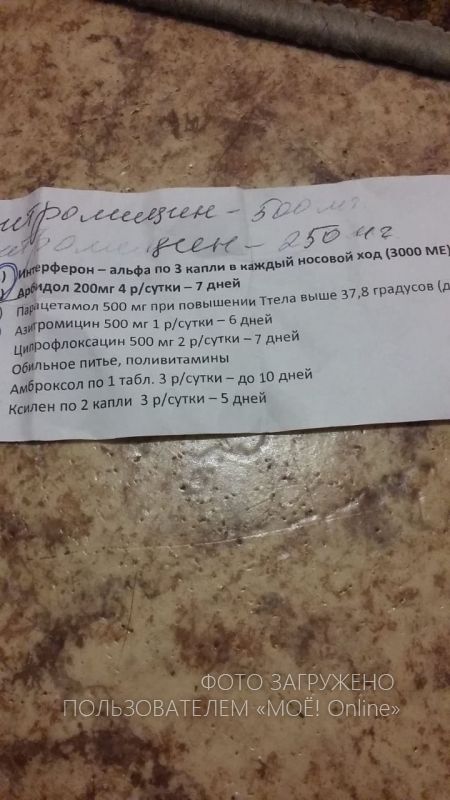 – 500 мг
– 250 мг
Интерферон – альфа по 3 капли в каждый носовой ход (3000 МЕ)
Арбидол 200мг 4 р/сутки – 7 дней
Парацетамол 500 мг при повышении Ттела выше 37,8 градусов (д
Азитромицин 500 мг 1 р/сутки – 6 дней
Ципрофлоксацин 500 мг 2 р/сутки – 7 дней
Обильное питье, поливитамины
Амброксол по 1 табл. 3 р/сутки – до 10 дней
Ксилен по 2 капли 3 р/сутки – 5 дней
ФОТО ЗАГРУЖЕНО
ПОЛЬЗОВАТЕЛЕМ «МОЁ! Online»